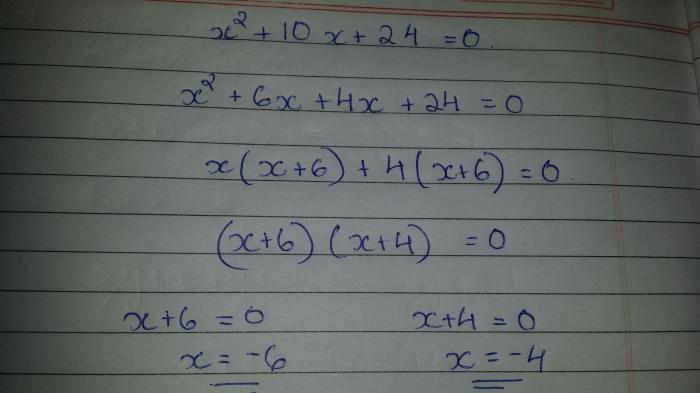 x² + 10x + 24 = 0.
x² + 6x + 4x + 24 = 0
x(x+6) + 4(x+6) = 0.
(x+6) (x+4) = 0
x+6 = 0 x+4 = 0
x = -6 x = -4